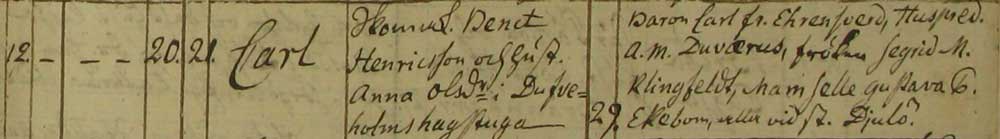 12. - - - 20. 21. Carl
Skomak. Bengt
Henricsson och Hust.
Anna Olsdr i Dufve=
holms hagstuga
Baron Carl fr. Ehrensverd, Huspred.
A. M. Duværus, fröken Segrid M.
Klingfeldt, Mamselle Gustava E.
29. Ekebom, alla vid st. Djulö.